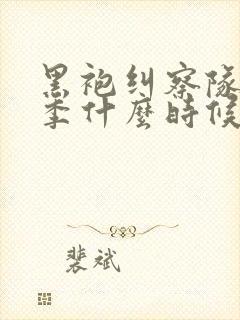 黑袍纠察隊
季什麼時候
裴斌